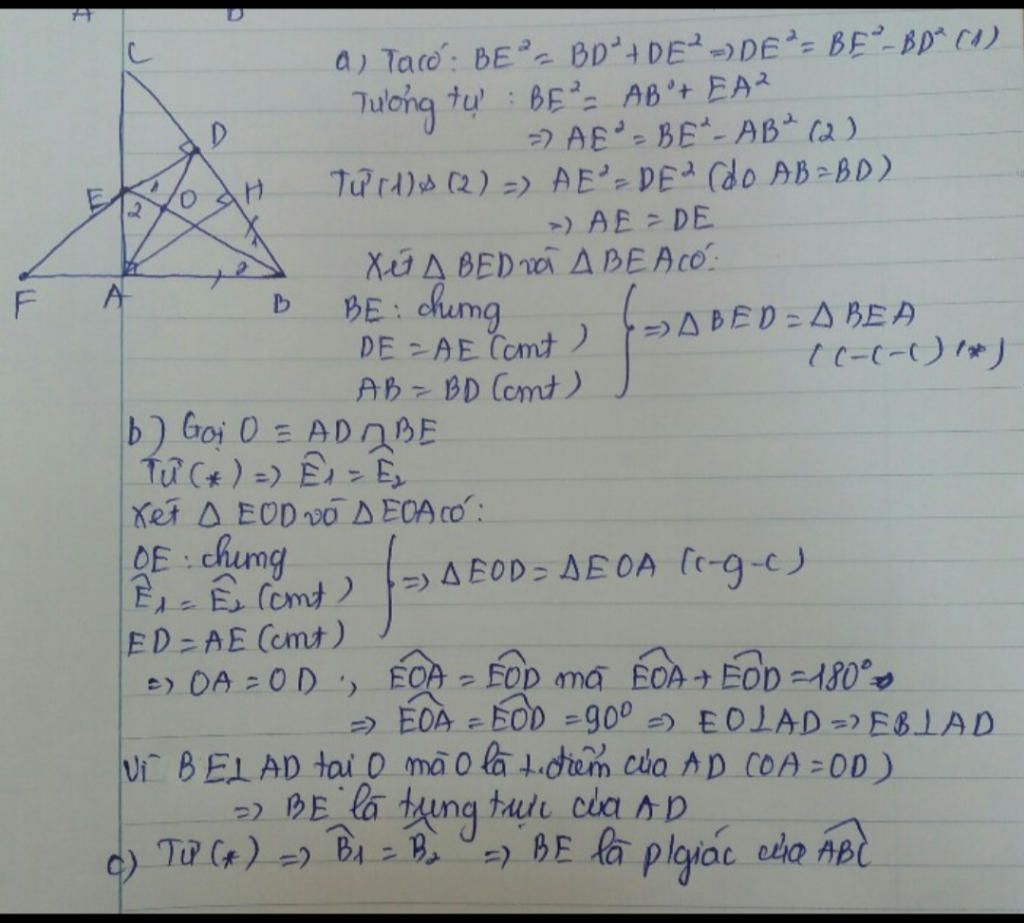 A B
C
D
E 1 O H
2 1
2
F A B
a) Ta có: BE² = BD² + DE² => DE² = BE² - BD² (1)
Tương tự : BE² = AB² + EA²
=> AE² = BE² - AB² (2)
Từ (1) & (2) => AE² = DE² (do AB = BD)
=> AE = DE
Xét Δ BED và Δ BEA có:
BE : chung
DE = AE (cmt)
AB = BD (cmt)
=> Δ BED = Δ BEA
(c-c-c) (*)
b) Gọi O ≡ AD ∩ BE
Từ (*) => Ê₁ = Ê₂
Xét Δ EOD và Δ EOA có:
OE : chung
Ê₁ = Ê₂ (cmt)
ED = AE (cmt)
=> Δ EOD = Δ EOA (c-g-c)
=> OA = OD ; EOA = EOD mà EOA + EOD = 180°
=> EOA = EOD = 90° => EO ⊥ AD => EB ⊥ AD
Vì BE ⊥ AD tại O mà O là t.điểm của AD (OA = OD)
=> BE là trung trực của AD
c) Từ (*) => B̂₁ = B̂₂ => BE là p/giác của ABC